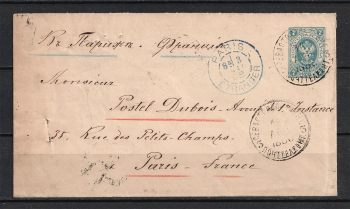 Въ Парижъ - Францiю
Monsieur
Postel Dubois - Avoué de 1re Instance
35. Rue des Petits-Champs.
Paris - France
PARIS
ETRANGER
7